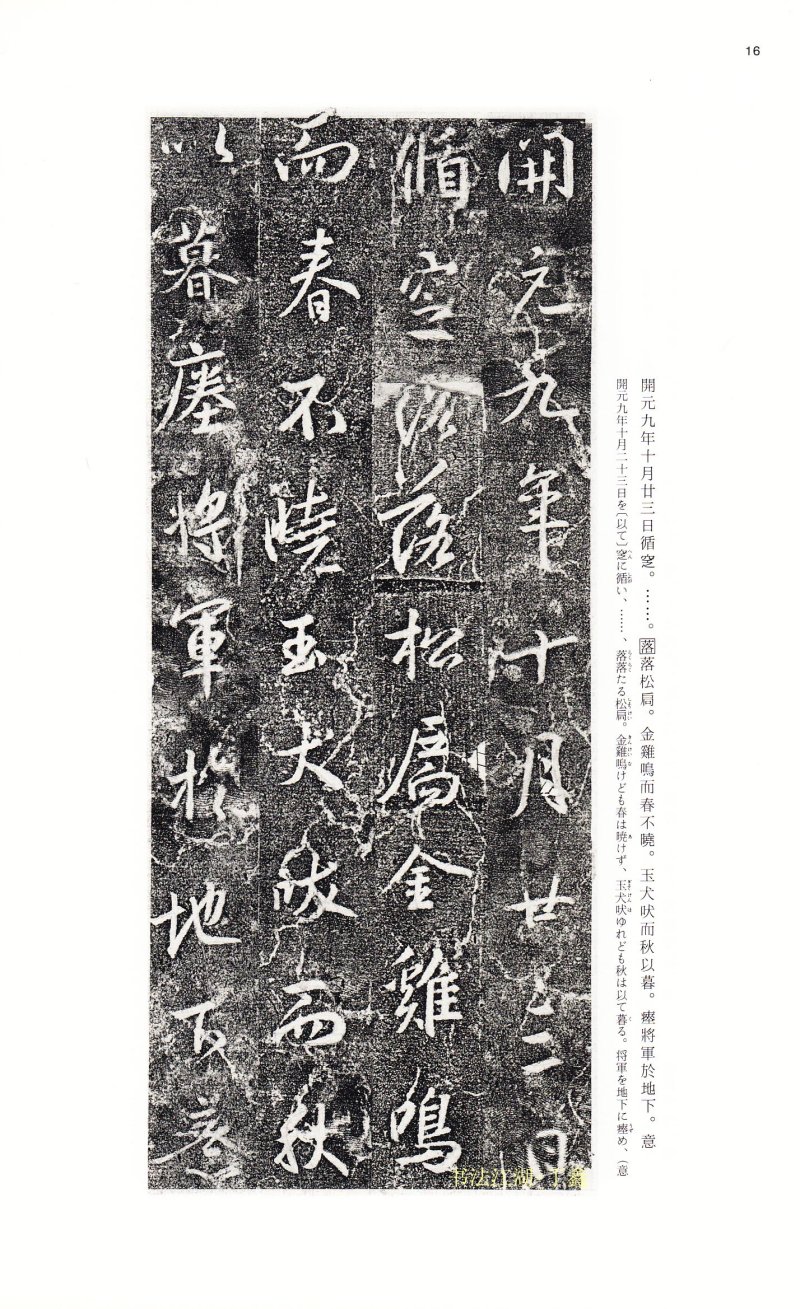 16
開元九年十月廿三日循窆。……。落落松扃。金雞鳴而春不曉。玉犬吠而秋以暮。瘞將軍於地下。意
開元九年十月二十三日を〔以て〕窆に循い、……、落落たる松扃。金雞鳴けども春は暁けず、玉犬吠ゆれども秋は以て暮る。将軍を地下に瘞め、(意
開元九年十月廿三日
循空落落松扃金雞鳴
而春不曉玉犬吠而秋
以暮瘞將軍於地下意
书法江湖